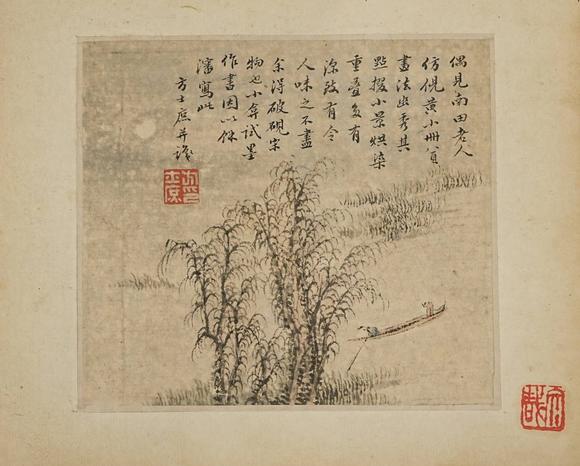 偶見南田老人
仿倪黄小冊頁
畫法幽秀其
點掇小景烘染
重疊多有
深致有令
人味之不盡
余得破硯宋
物也小試墨
作書因以餘
瀋寫此
方士庶并識